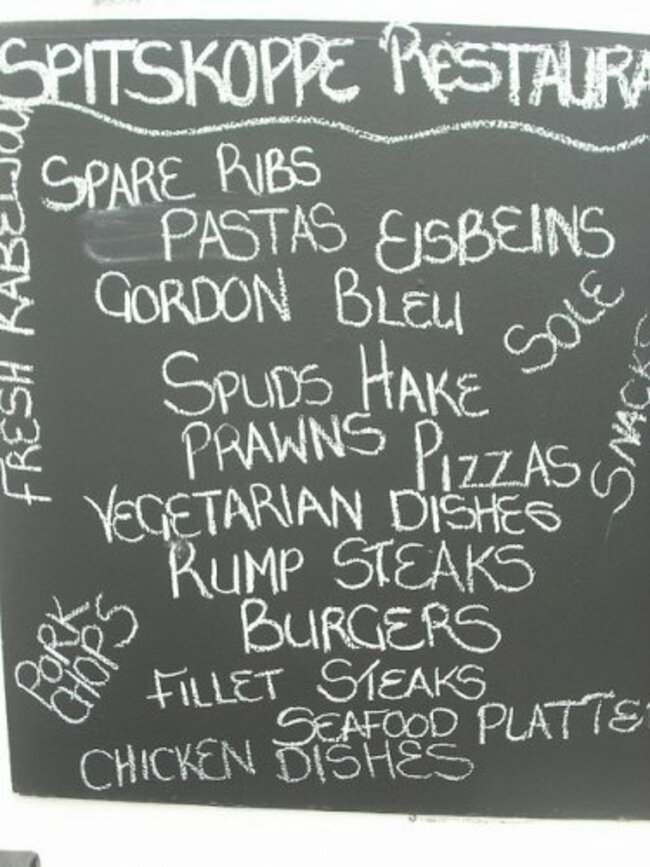 SPITSKOPPE RESTAURA
FRESH KABELJOU
SPARE RIBS
PASTAS EISBEINS
GORDON BLEU
SOLE
SPUDS HAKE
SNACKS
PRAWNS PIZZAS
VEGETARIAN DISHES
RUMP STEAKS
BURGERS
PORK
CHOPS
FILLET STEAKS
SEAFOOD PLATTE
CHICKEN DISHES